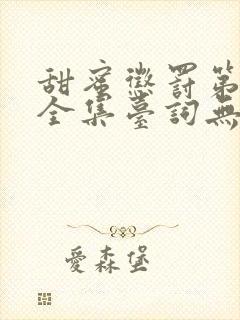 甜蜜懲罰第
全集臺詞無
愛森堡